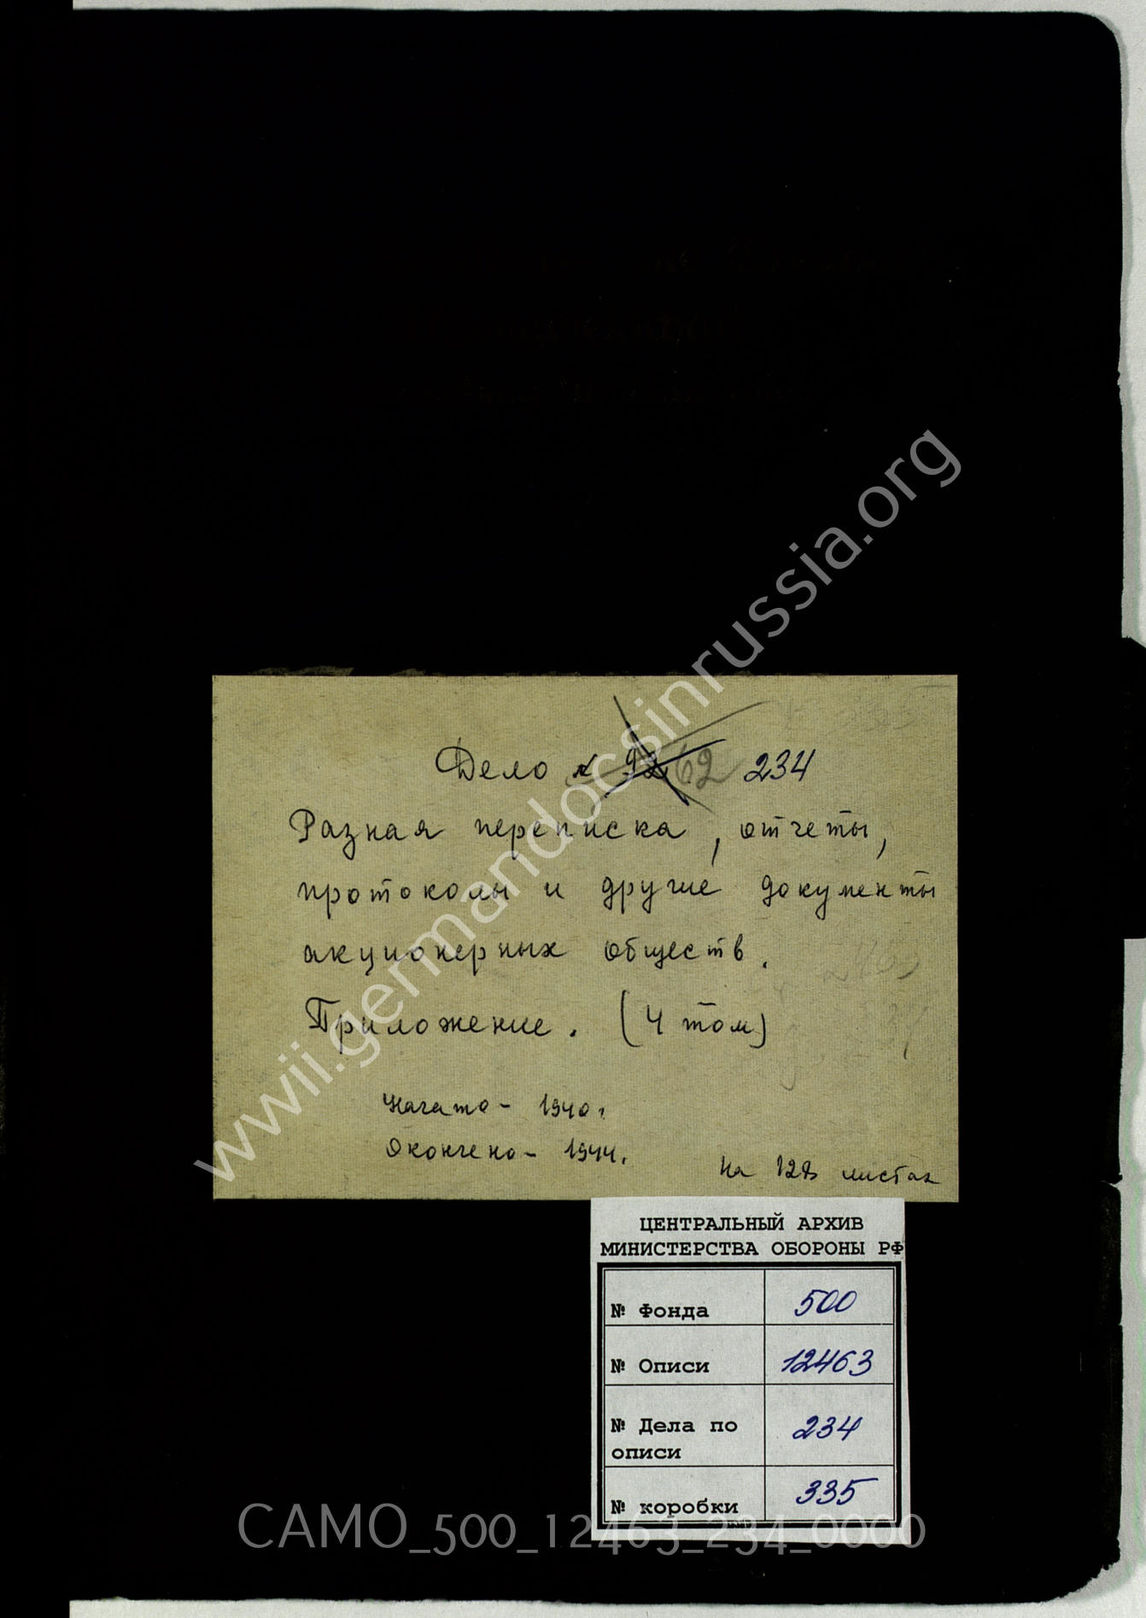 Дело № 62 234
Разная переписка, отчеты,
протоколы и другие документы
акционерных обществ.
Приложение. (4 том)
Начато - 1940 г.
Окончено - 1944.
На листах
ЦЕНТРАЛЬНЫЙ АРХИВ
МИНИСТЕРСТВА ОБОРОНЫ РФ
№ Фонда 500
№ Описи 12463
№ Дела по описи 234
№ коробки 335
www.germandocsinrussia.org
CAMO_500_12463_234_0000